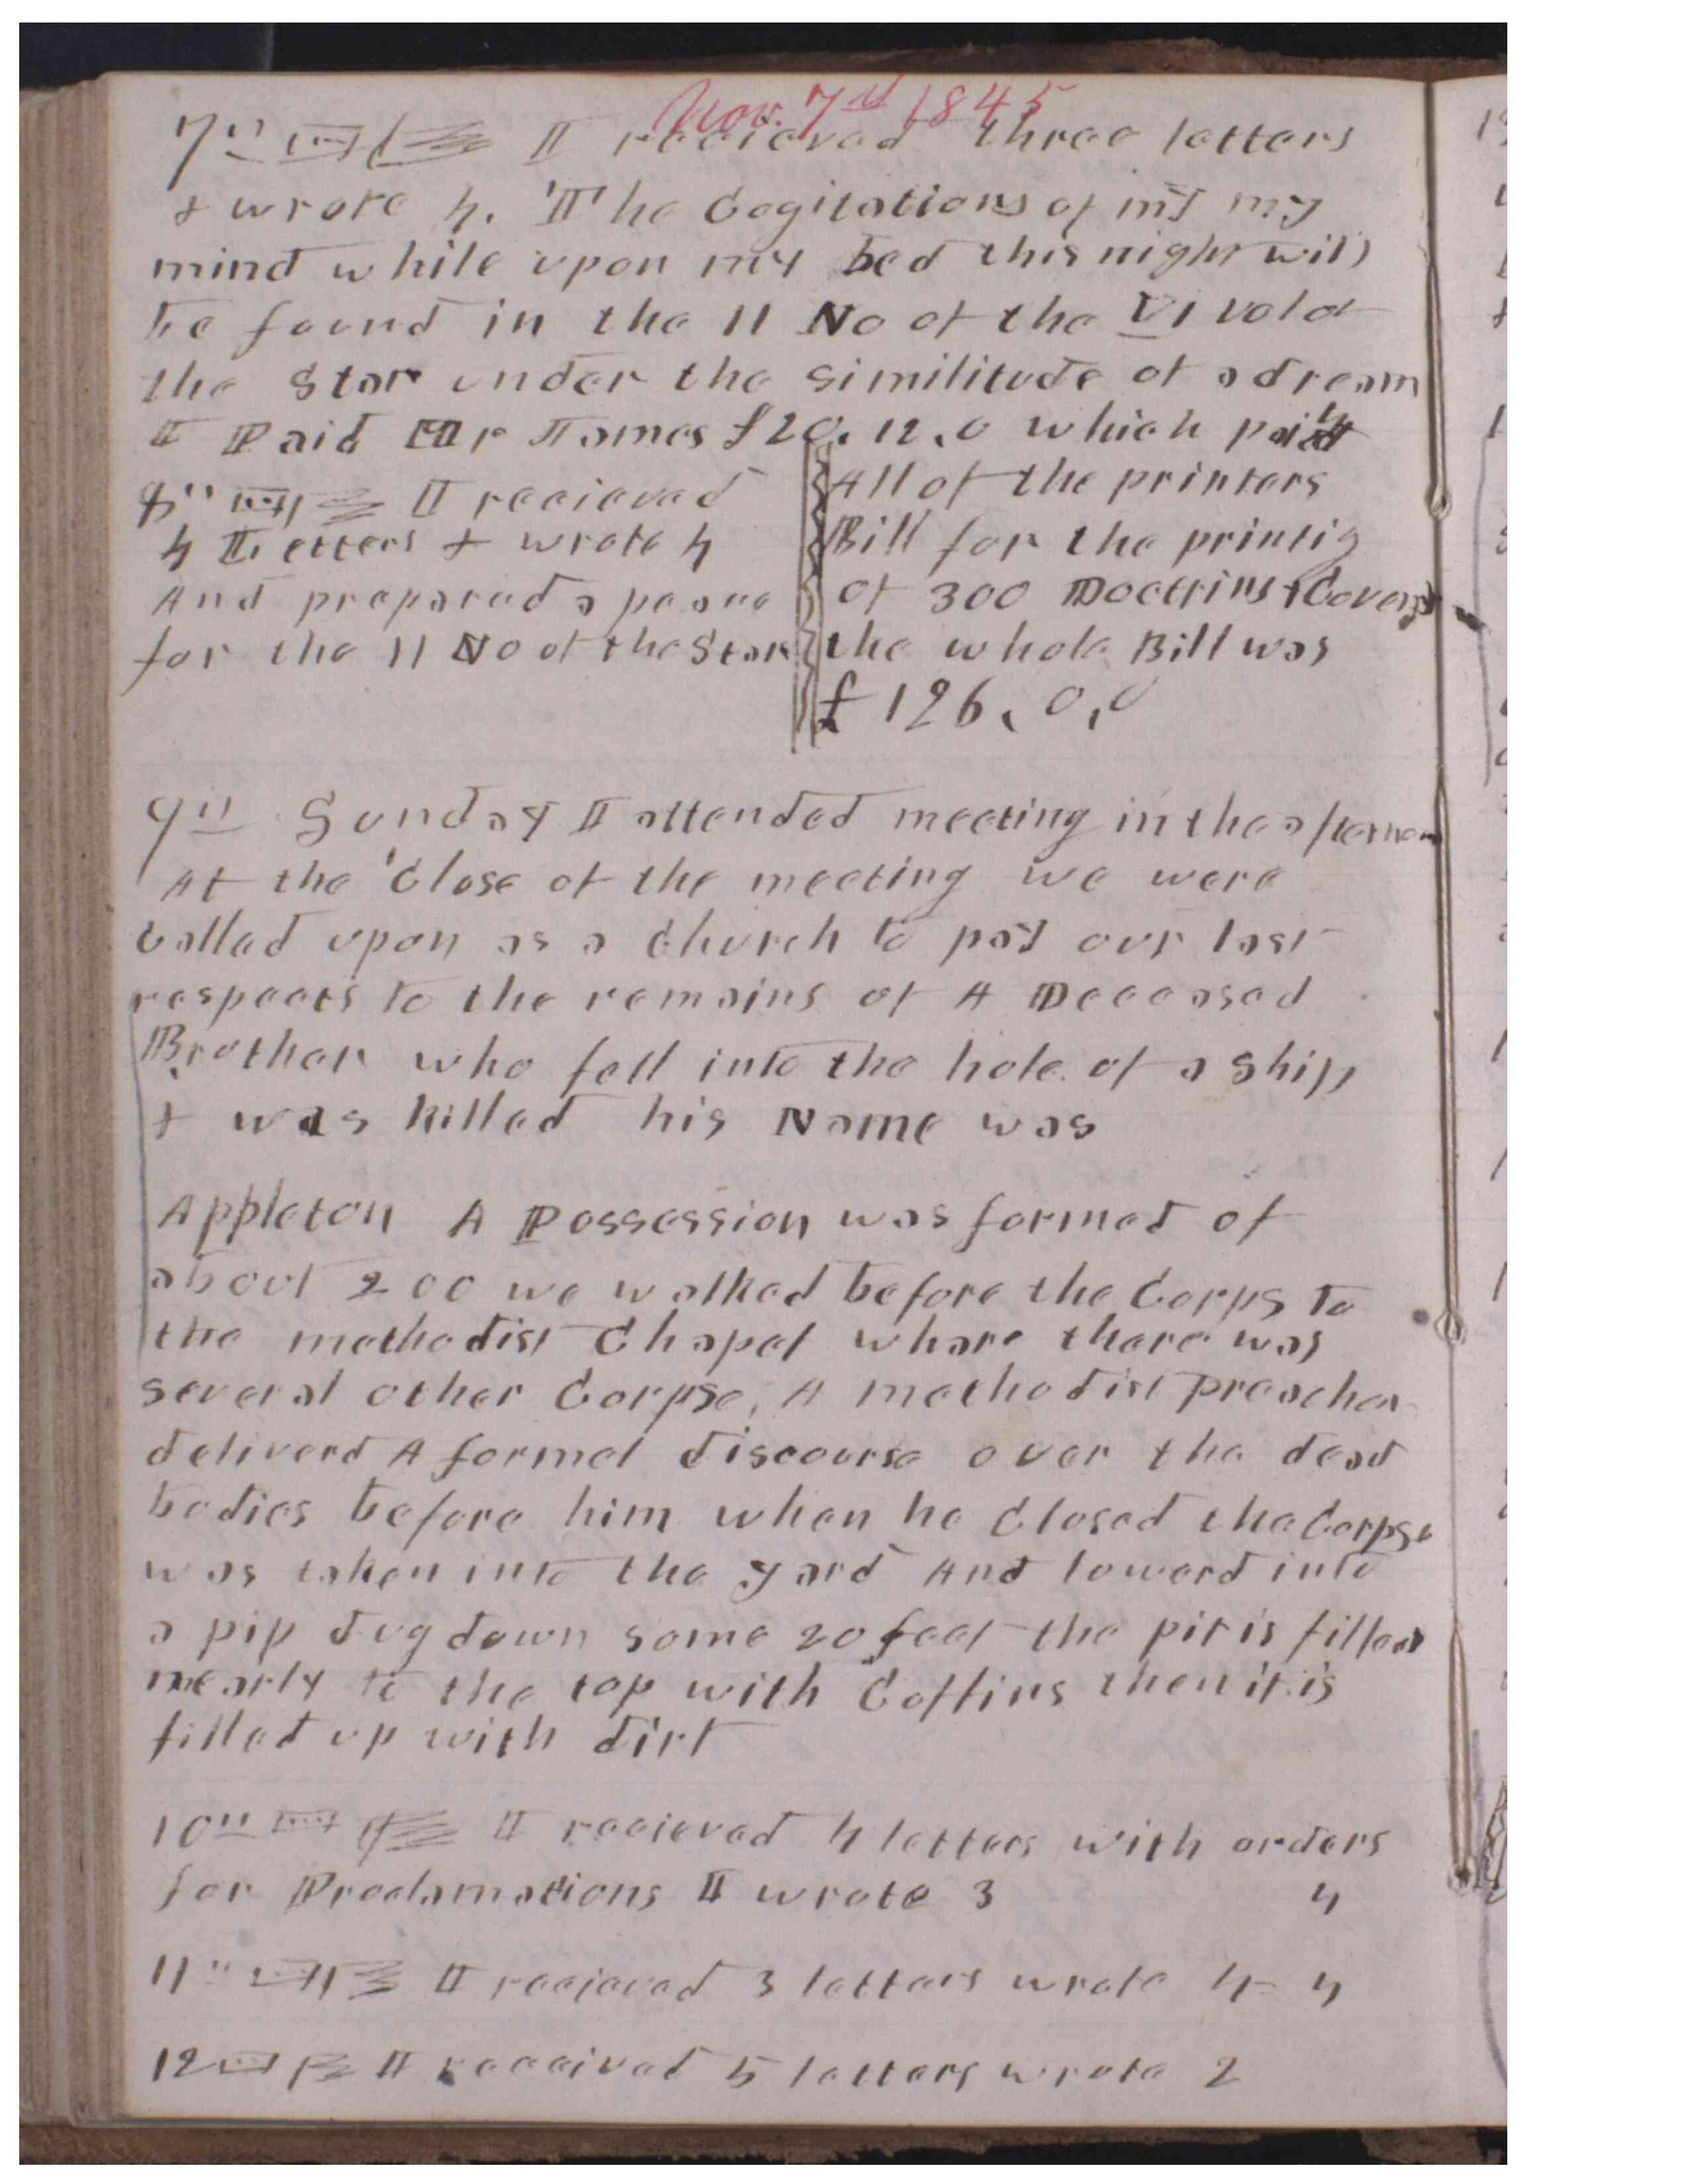 Nov. 7th 1845
7th I recieved three letters
& wrote 4. The Cogitations of my my
mind while upon my bed this night will
be found in the 11 No of the VI vol of
the Star under the similitude of a dream
I Paid Mr James £20.12.0 which paid
8th I recieved
4 Letters & wrote 4
And prepared a peace
for the 11 No of the Star
All of the printers
Bill for the printig
of 300 Doctrins & Covens
the whole Bill was
£126.0.0
9th Sunday I attended meeting in the afternoon
At the Close of the meeting we were
Called upon as a Church to pay our last
respects to the remains of A Deceased
Brother who fell into the hole of a Ship
& was killed his Name was
Appleton A Possession was formed of
about 200 we walked before the Corps to
the methodist Chapel whare there was
several other Corpse, A methodist preacher
deliverd A formel discourse over the dead
bodies before him when he Closed the Corpse
was taken into the yard And lowerd into
a pip dug down some 20 feet the pit is filled
nearly to the top with Coffins then it is
filled up with dirt
10th I recieved 4 letters with orders
for Proclamations I wrote 3 4
11th I recieved 3 letters wrote 4 4
12 I recieved 5 letters wrote 2